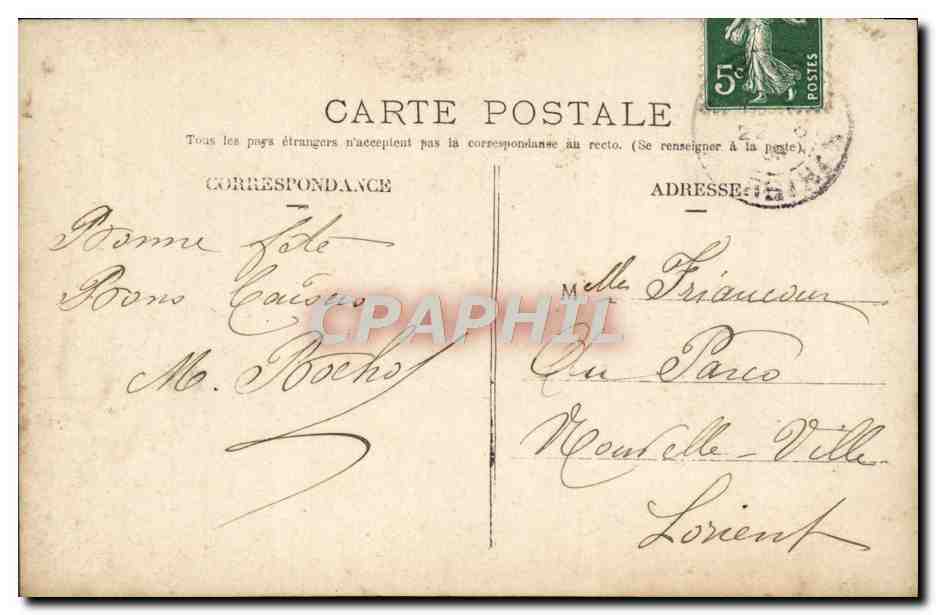 5c
POSTES
CARTE POSTALE
Tous les pays étrangers n'acceptent pas la correspondanse au recto. (Se renseigner à la poste).
CORRESPONDANCE
ADRESSE
Bonne fête
Bons Baisers
M. Rochof
Melle Friancour
Au Parco
Nouvelle-Ville
Lorient
CPAPHIL